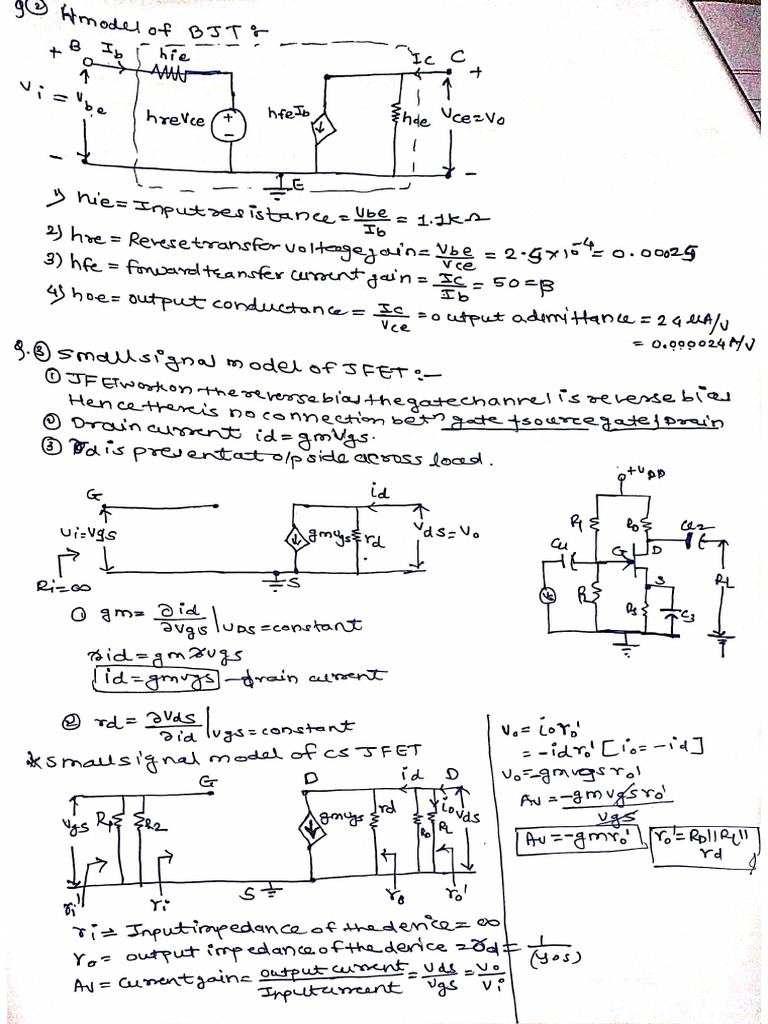 Q② Hmodel of BJT :-
+ B Ib hie Ic C +
Vi = Vbe hreVce + - hfeIb hoe Vce=Vo
- E -
1) hie = Input resistance = Vbe/Ib = 1.1kΩ
2) hre = Revese transfer voltage gain = Vbe/Vce = 2.5×10^-4 = 0.00025
3) hfe = forward transfer current gain = Ic/Ib = 50 = β
4) hoe = output conductance = Ic/Vce = output admittance = 24 μA/V
= 0.000024 A/V
Q.③ small signal model of JFET :-
① JFET work on the reverse bias the gate channel is reverse bias
Hence there is no connection betn gate & source gate & Drain
② Drain current id = gmVgs.
③ rd is present at o/p side across load.
G id
Vi=Vgs gmvgs rd Vds=Vo
Ri=∞ S
+VDD
R1 RD
G D
S
Rs C3 RL
① gm = ∂id/∂vgs | VDS = constant
∂id = gm ∂vgs
id = gmvgs - drain current
② rd = ∂Vds/∂id | vgs = constant
* Small signal model of CS JFET
G D id D
Vgs R1 R2 gmvgs rd RD RL io Vds
ri' ri S ro ro'
ri = Input impedance of the device = ∞
ro = output impedance of the device = rd = 1/(yos)
Av = current gain = output current/Input current = Vds/Vgs = Vo/Vi
Vo = ioro'
= -idro' [io = -id]
Vo = -gmvgsro'
Av = -gmvgsro'/vgs
Av = -gmro' ro' = RD||RL||rd